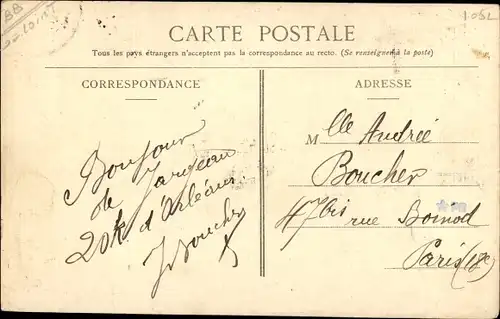 CARTE POSTALE
Tous les pays étrangers n'acceptent pas la correspondance au recto. (Se renseigner à la poste)
CORRESPONDANCE
ADRESSE
Bonjour
de Jargeau
20k. d'Orléans.
J Boucher
Mlle Andrée
Boucher
47bis rue Boinod
Paris (18e)